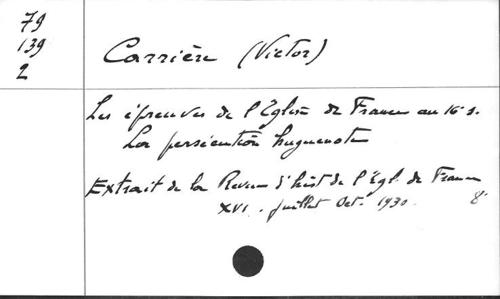 79
139
2
Carrière (Victor)
Les épreuves de l'Église de France au 16e s.
La persécution huguenote
Extrait de la Revue d'hist de l'Égl. de France
XVI. juillet Oct. 1930. 8°